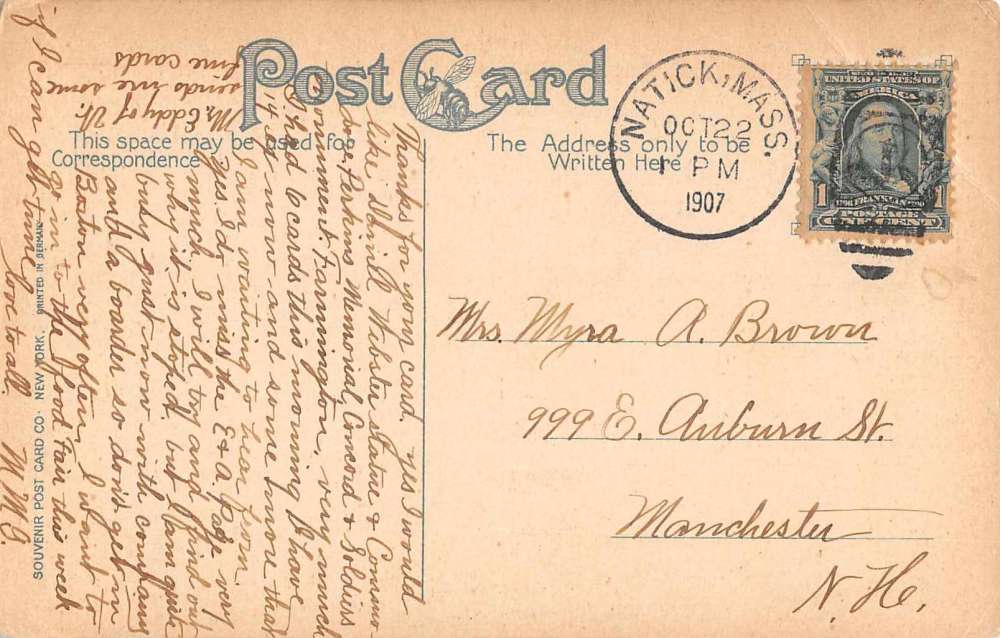 Post Card
This space may be used for
Correspondence
The Address only to be
Written Here
NATICK, MASS.
OCT 22
1 PM
1907
UNITED STATES OF
AMERICA
1 1
1706 FRANKLIN 1790
POSTAGE
ONE CENT
Mrs. Myra A. Brown
999 E. Auburn St.
Manchester
N. H.
Thanks for your card. yes I would
like Daniel Webster statue & Commo-
dore Perkins Memorial, Concord & Soldiers
monument. Farmington, very much
I had 6 cards this morning I have
now and some more that
I am waiting to hear from.
yes I do miss the E & A Page very
much. I will try and find out
why it is stoped. but I am quite
busy just now with company
and a boarder so don't get in
Boston very often, I want to
go in to the food Fair this week
if I can get time love to all. M.M.G.
Mr. Eddy of Vt.
sends me some
fine cards
SOUVENIR POST CARD CO. NEW YORK. PRINTED IN GERMANY